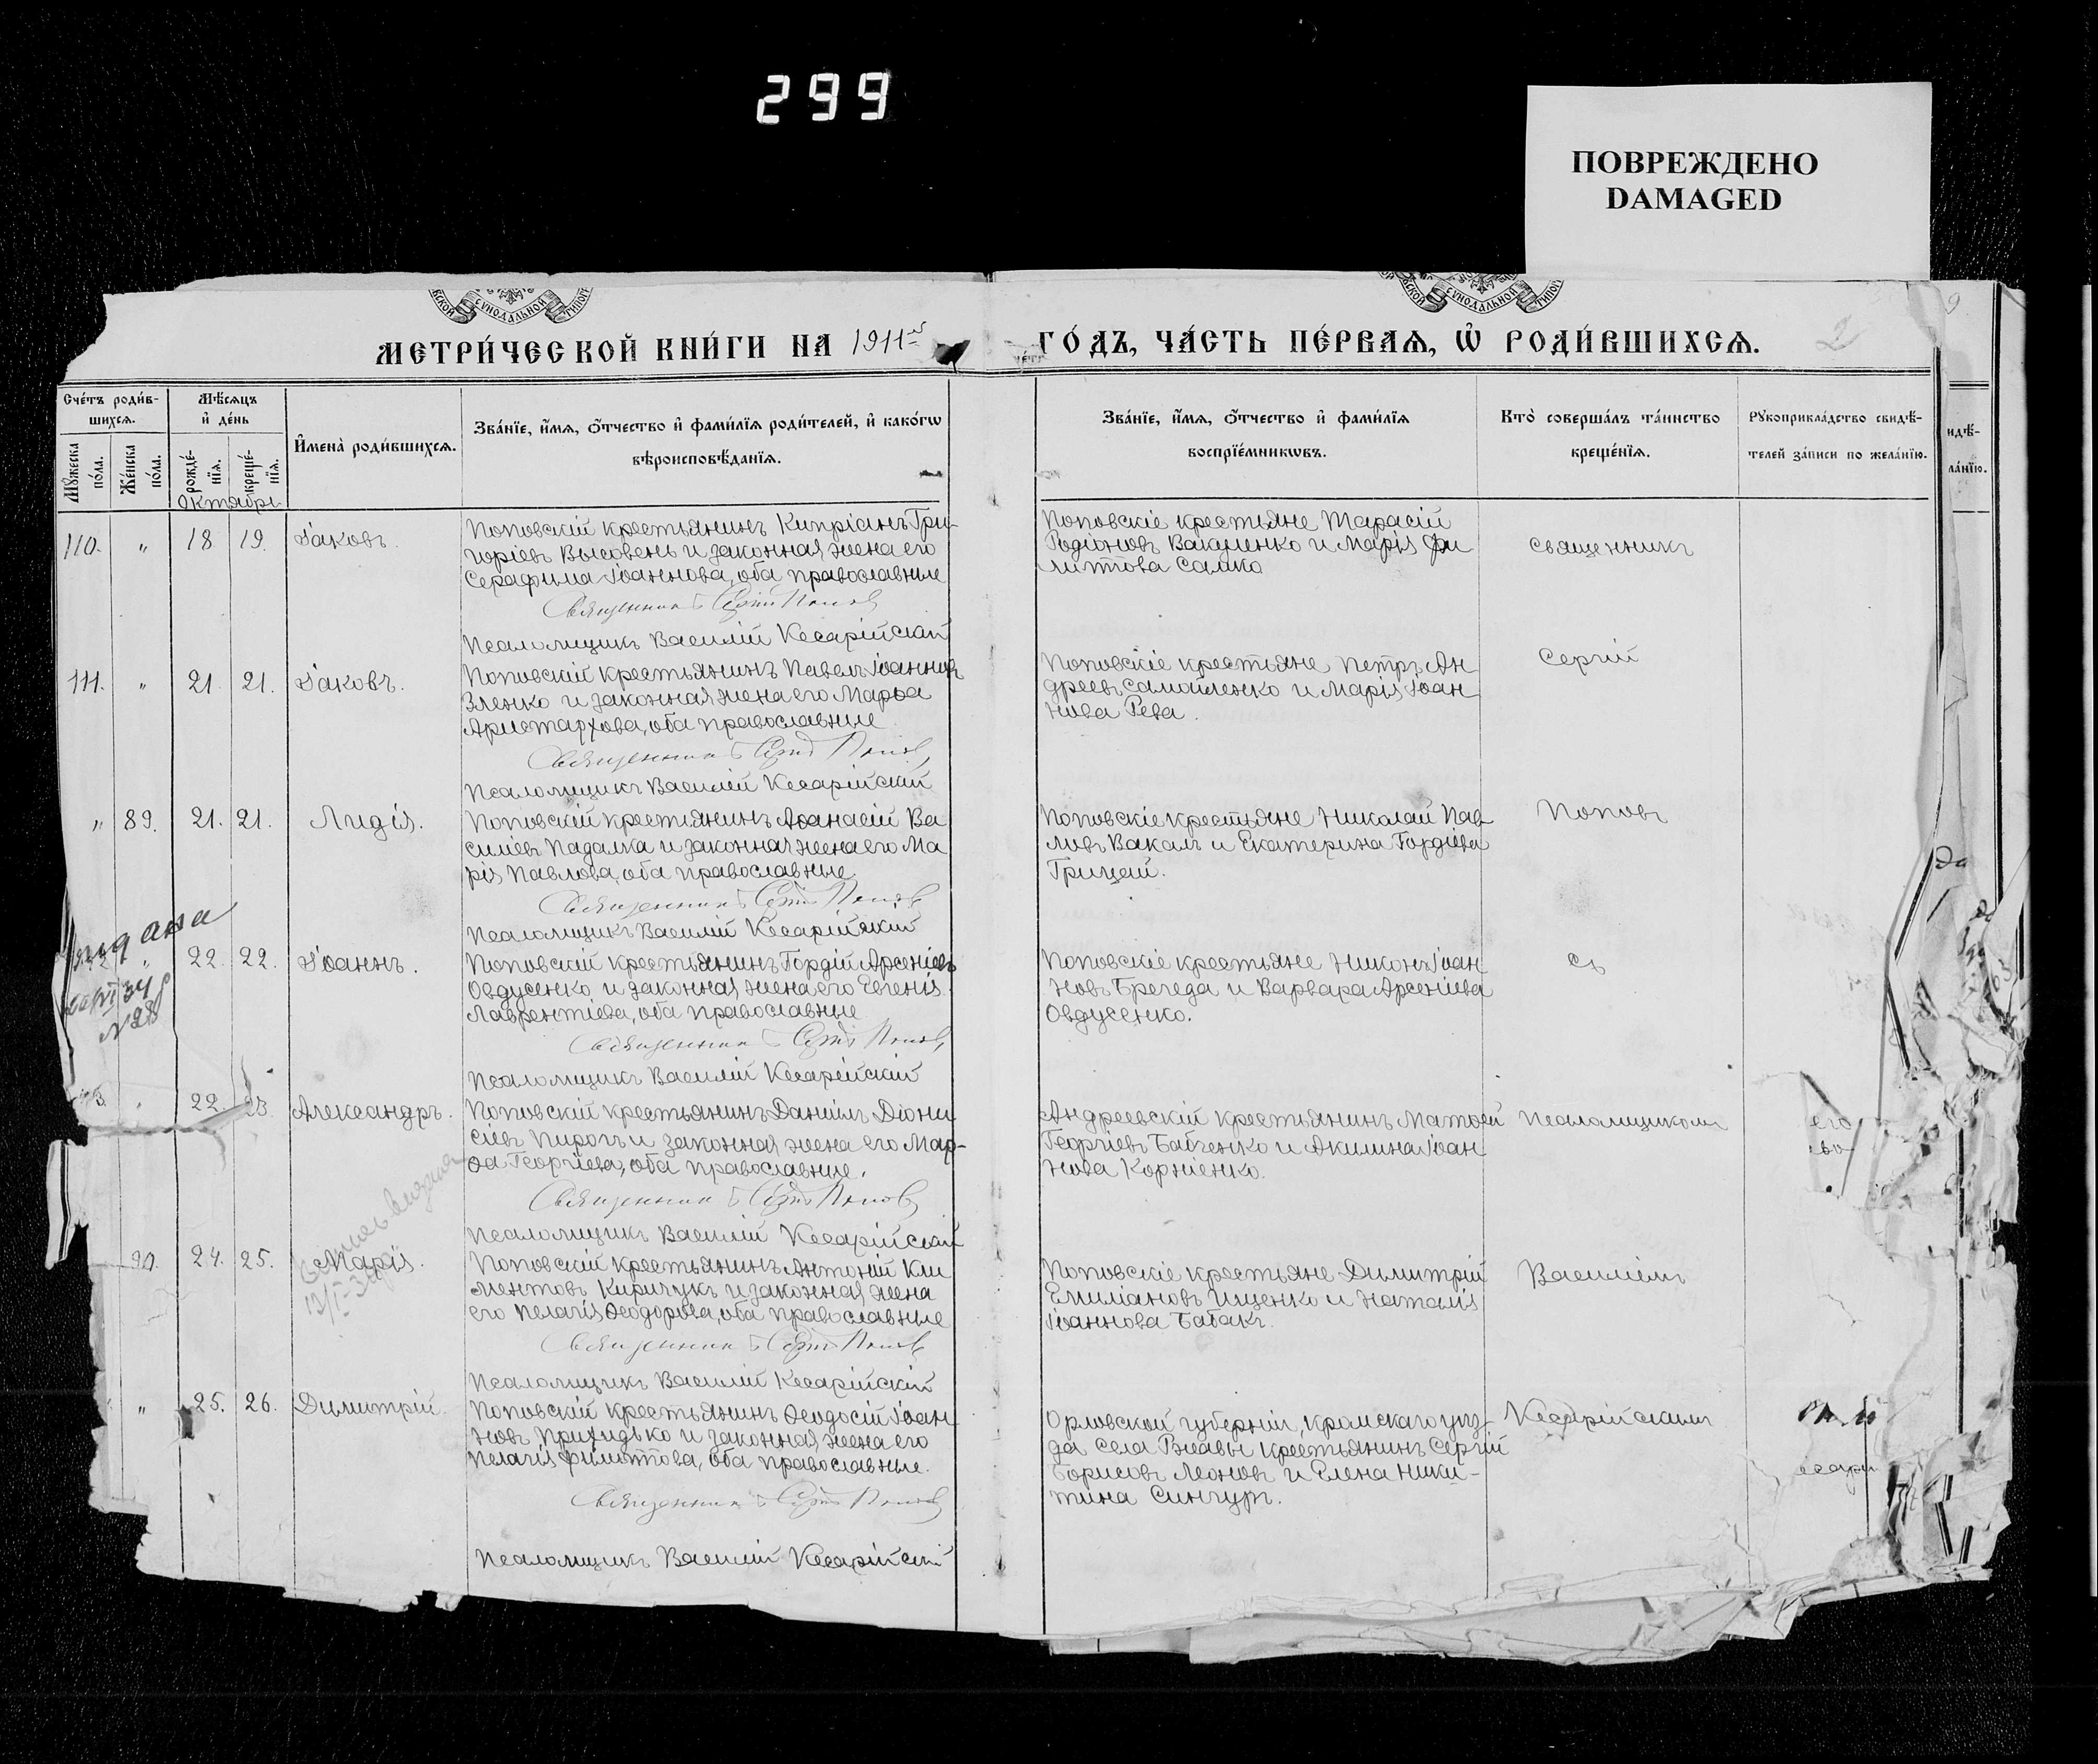 299
ПОВРЕЖДЕНО
DAMAGED
СѴНОДАЛЬНОЙ
СѴНОДАЛЬНОЙ
МЕТРИ́ЧЕСКОЙ КНИ́ГИ НА 1911
ГО́ДЪ, ЧА́СТЬ ПЕ́РВАѦ, Ѡ҆ РОДИ́ВШИХСѦ.
Сче́тъ роди́в-
шихсѧ.
Мѹжеска
по́ла.
Же́нска
по́ла.
Мѣ́сѧцъ
и҆ де́нь
рожде́-
нїѧ.
креще́-
нїѧ.
Октябрь
И҆мена̀ роди́вшихсѧ.
Зва́нїе, и҆́мѧ, ѻ҆́тчество и҆ фами́лїѧ роди́телей, и҆ како́гѡ
вѣроисповѣ́данїѧ.
Зва́нїе, и҆́мѧ, ѻ҆́тчество и҆ фами́лїѧ
воспрїе́мникѡвъ.
Кто̀ соверша́лъ та́инство
креще́нїѧ.
Рѹкоприкла́дство свидѣ́-
телей за́писи по жела́нїю.
идѣ́-
ла́нїю.
110. " 18 19. Іаковъ.
Поповскій крестьянинъ Кипріанъ Гри-
горіевъ Высовень и законная жена его
Серафима Іоаннова, оба православные
Священникъ Попов
Псаломщикъ Василій Кесарійскій
Поповскіе крестьяне Тарасій
Родіоновъ Вакуленко и Марія Фи
липпова Сашко
священникъ
111. " 21. 21. Іаковъ.
Поповскій крестьянинъ Павелъ Іоанновъ
Зленко и законная жена его Марѳа
Аристархова, оба православные
Священникъ Попов
Псаломщикъ Василій Кесарійскій
Поповскіе крестьяне Петръ Ан
дреевъ Самойленко и Марія Іоан
нова Рева.
Сергій
" 89. 21. 21. Лидія.
Поповскій крестьянинъ Аѳанасій Ва
силіевъ Падалка и законная жена его Ма
рія Павлова, оба православные
Священникъ Попов
Псаломщикъ Василій Кесарійскій
Поповскіе крестьяне Николай Пав
ловъ Вакалъ и Екатерина Гордіева
Грицай.
Поповъ
" 22. 22. Іоаннъ.
Поповскій крестьянинъ Гордій Арсеніевъ
Овдусенко и законная жена его Евгенія
Лаврентіева, оба православные
Священникъ Попов
Псаломщикъ Василій Кесарійскій
Поповскіе крестьяне Никонъ Іоан
новъ Брегеда и Варвара Арсеніева
Овдусенко.
съ
22. 23. Александръ.
Поповскій крестьянинъ Даніилъ Діони
сіевъ Пирогъ и законная жена его Мар-
ѳа Георгіева, оба православные.
Священникъ Попов
Псаломщикъ Василій Кесарійскій
Андреевскій крестьянинъ Матѳей
Георгіевъ Бабченко и Акилина Іоан
нова Корніенко.
псаломщикомъ
его
90. 24. 25. Марія.
Поповскій крестьянинъ Антоній Кли
ментовъ Киричукъ и законная жена
его Пелагія Ѳеодорова, оба православные
Священникъ Попов
Псаломщикъ Василій Кесарійскій
Поповскіе крестьяне Димитрій
Емиліановъ Ищенко и Наталія
Іоаннова Бабакъ.
Василіемъ
" 25. 26. Димитрій.
Поповскій крестьянинъ Ѳеодосій Іоан
новъ Прихидько и законная жена его
Пелагія Филиппова, оба православные.
Священникъ Попов
Псаломщикъ Василій Кесарійскій
Орловской губерніи, Кромскаго уѣз-
да села Ржавы крестьянинъ Сергій
Борисовъ Леоновъ и Елена Ники-
тина Сингуръ.
Кесарійскимъ